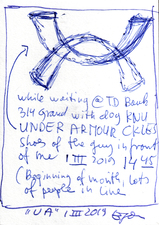 while waiting @ TD Bank
314 Grand with dog KNU
UNDER ARMOUR
shoes of the guy in front
of me 1 III 2019 14 45
(Beginning of month, lots
of people in line
"UA" 1 III 2019